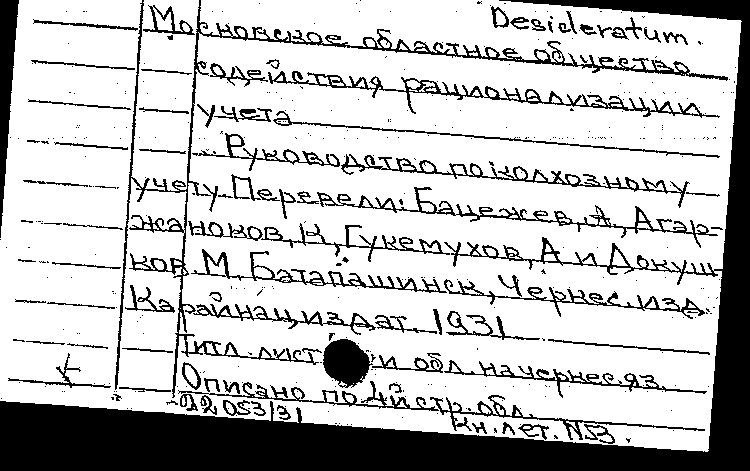 Desideratum.
Московское областное общество
содействия рационализации
учета
Руководство по колхозному
учету. Перевели: Бацежев, А., Агар-
жаноков, К, Гукемухов, А и Докуш-
ков. М. Баталпашинск, Черкес. изд.
Карайнациздат. 1931
Титл. лист и обл. на черкес. яз.
Описано по 4й стр. обл.
22053/31
Кн. лет. N53.